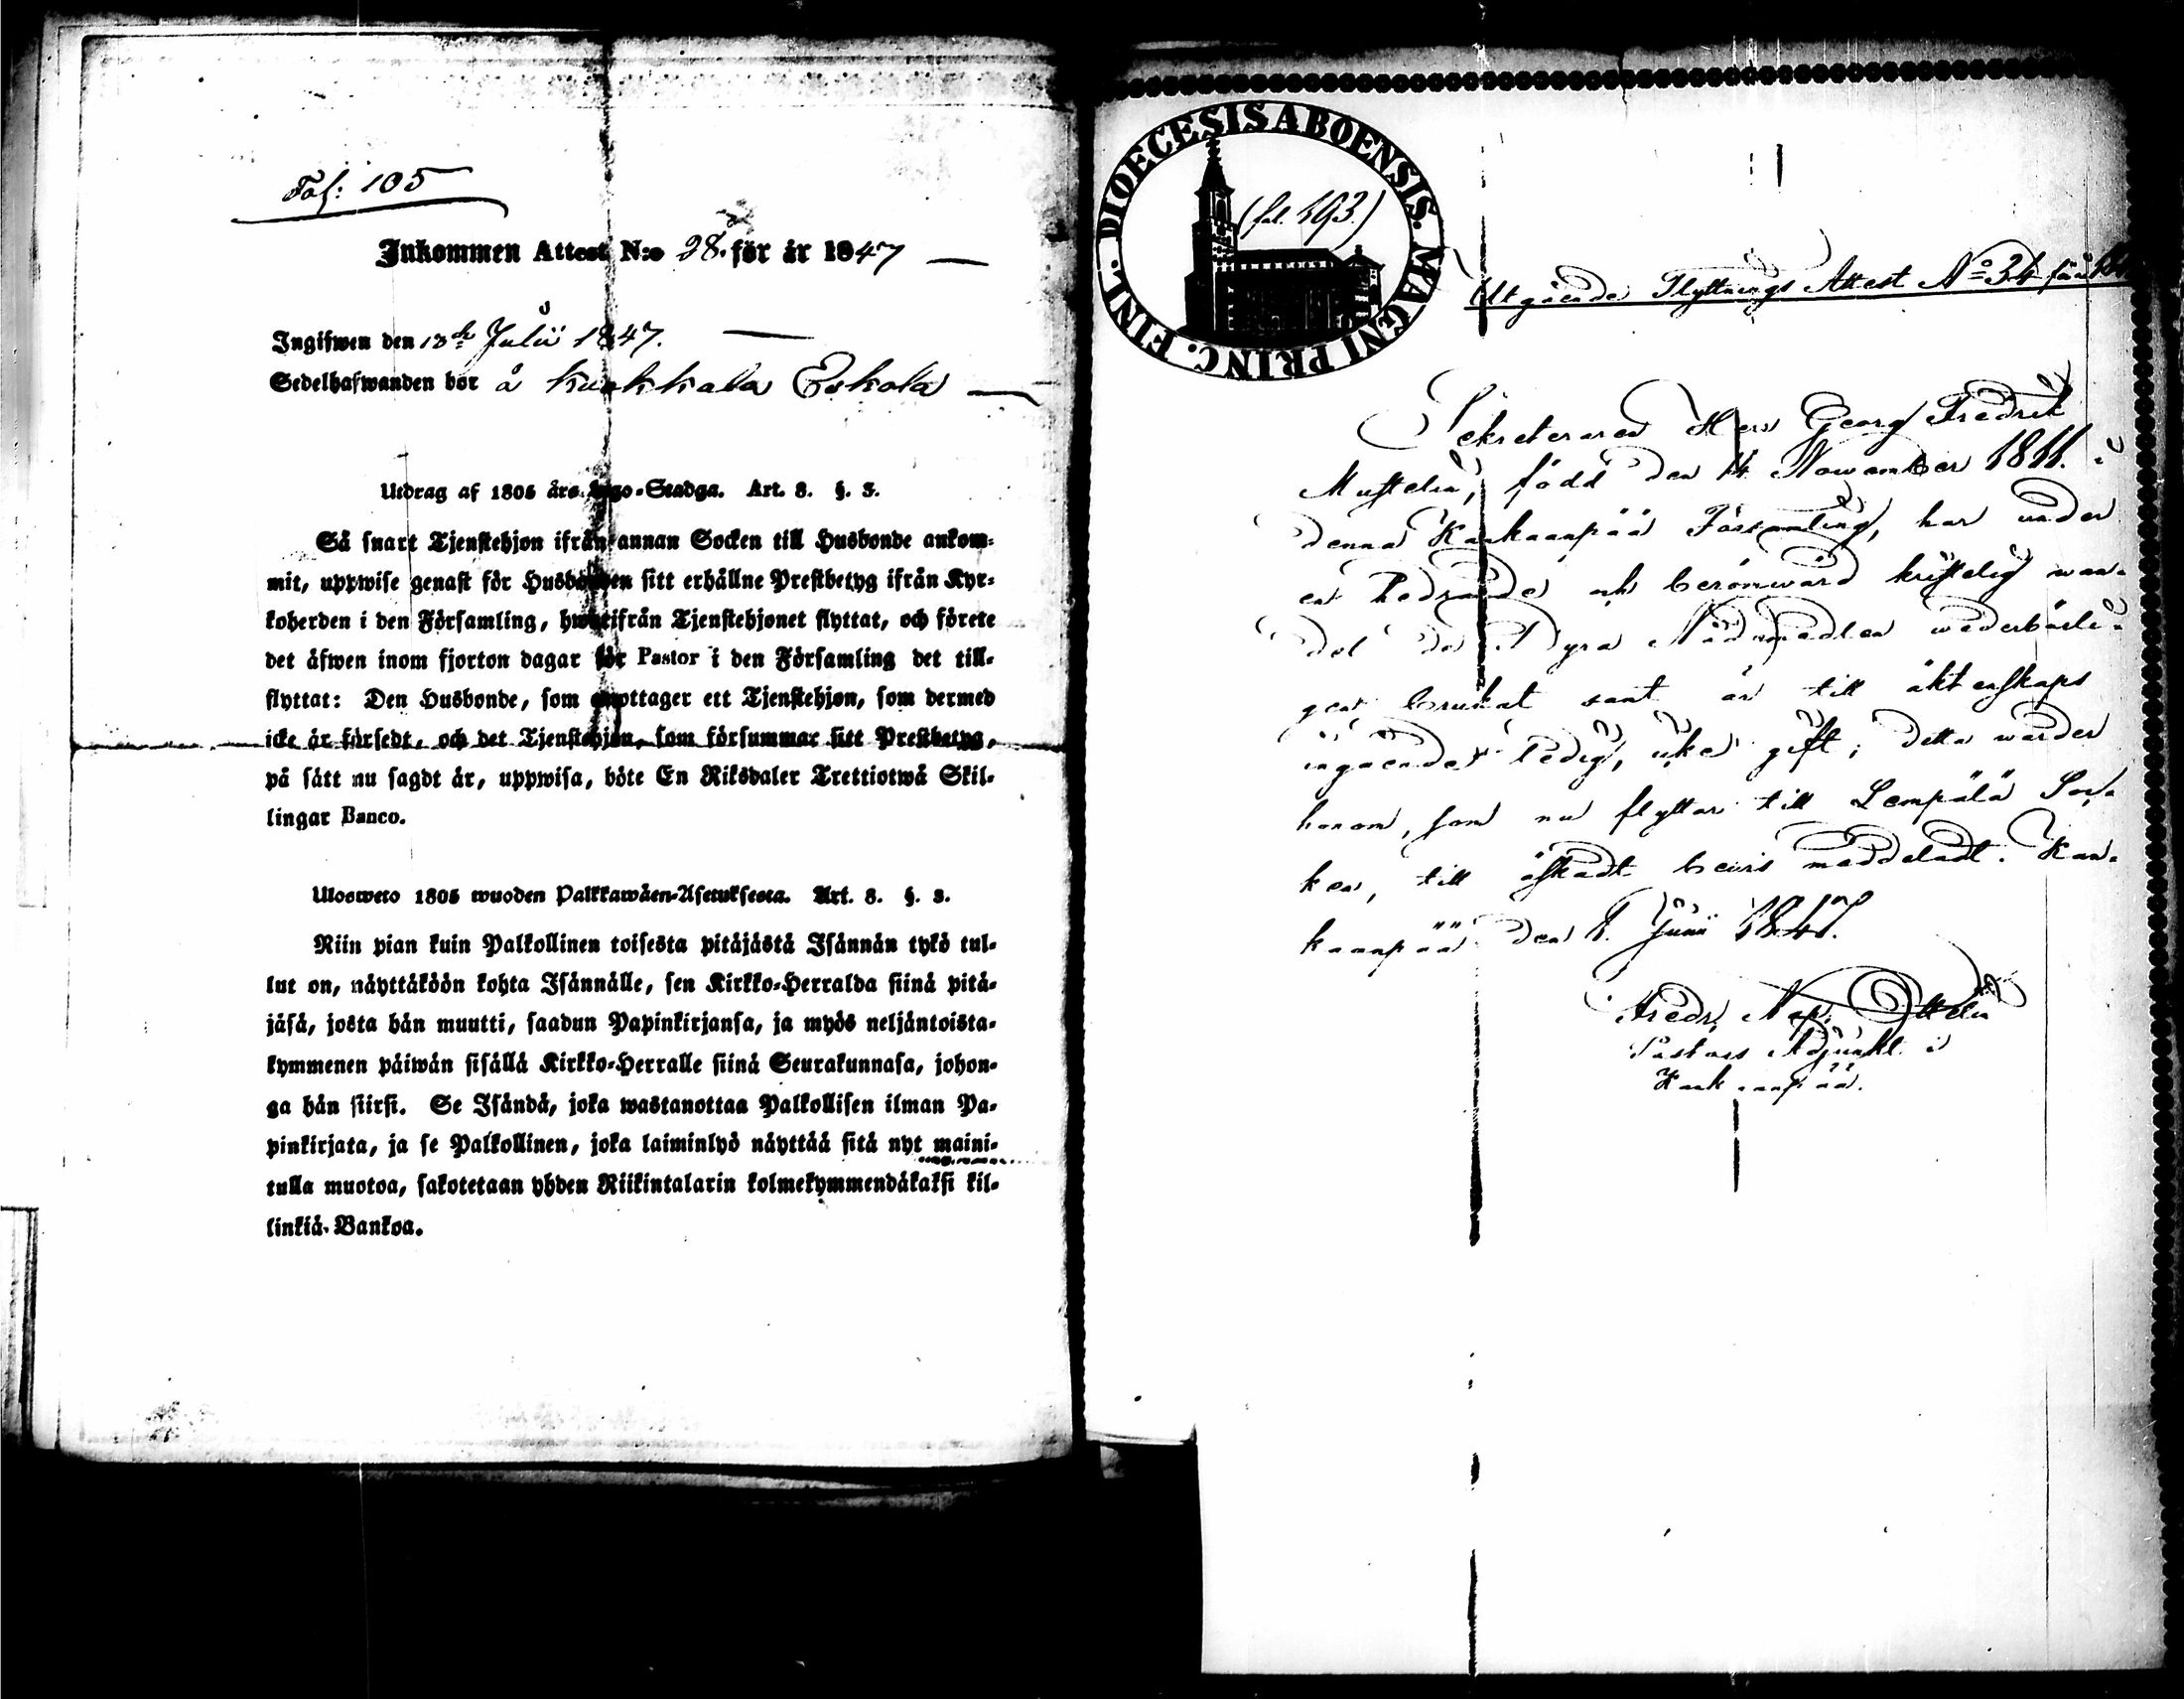 Fol: 105
Inkommen Attest N:o 28. för år 1847
Ingifwen den 13de Julii 1847.
Sedelhafwanden bor å Kuokkala Eskola
Utdrag af 1805 års Lego-Stadga. Art. 8. §. 3.
Så snart Tjenstehjon ifrån annan Socken till Husbonde ankom-
mit, uppwise genast för Husbonden sitt erhållne Prestbetyg ifrån Kyr-
koherden i den Församling, hwarifrån Tjenstehjonet flyttat, och förete
det äfwen inom fjorton dagar för Pastor i den Församling det till-
flyttat: Den Husbonde, som emottager ett Tjenstehjon, som dermed
icke är försedt, och det Tjenstehjon, som försummar sitt Prestbetyg,
på sätt nu sagdt är, uppwisa, böte En Riksdaler Trettiotwå Skil-
lingar Banco.
Ulosweto 1805 wuoden Palkkawäen-Asetuksesta. Art. 8. §. 3.
Niin pian kuin Palkollinen toisesta pitäjästä Isännän tykö tul-
lut on, näyttäköön kohta Isännälle, sen Kirkko-Herralda siinä pitä-
jäsä, josta hän muutti, saadun Papinkirjansa, ja myös neljäntoista-
kymmenen päiwän sisällä Kirkko-Herralle siinä Seurakunnasa, johon-
ga hän siirsi. Se Isändä, joka wastanottaa Palkollisen ilman Pa-
pinkirjata, ja se Palkollinen, joka laiminlyö näyttää sitä nyt maini-
tulla muotoa, sakotetaan yhden Riikintalarin kolmekymmendäkaksi kil-
linkiä Bankoa.
DIOECESIS ABOENSIS. MAGNI PRINC. FINL.
(fol. 193)
Utgående Flyttnings Attest No 34 för
Sekreteraren Herr Georg Fredrik
Mustelin, född den 14 November 1811. i
denna Kankaanpää Församling, har under
en hedrande och berömwärd kristelig wan-
del de Dyra Nådemedlen wederbörli-
gen brukat samt är till äktenskaps
ingående ledig, icke gift; detta warder
honom, som nu flyttar till Lempälä Soc-
ken, till äskadt bewis meddeladt. Kan-
kaanpää den 1. Junii 1847.
Fredr. Nap. Ittelin
Pastors Adjunkt i
Kankaanpää.